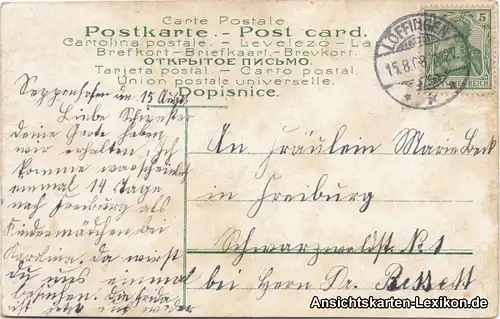 Carte Postale.
Postkarte. - Post card.
Cartolina postale. - Levelezö-La
Brefkort.-Briefkaart.-Brevkort.
ОТКРЫТОЕ ПИСЬМО.
Tarjeta postal. - Carro postal.
Union postale universelle.
Dopisnice.
LÖFFINGEN
15.8.08
5
DEUTSCHES REICH
Seppenhofen den 15 Aug.
Liebe Schwester
deine Carte haben
wir erhalten, ich
komme warscheinlich
einmal 14 Tage
nach Freiburg als
Kindermädchen bei
Karolina. da wirst
du uns einmal
besuchen. die Frida
ist jetz uns wieder
An Fräulein Marie Beck
in Freiburg
Schwarzwaldst. No 1
bei Herrn Dr. Bessett
Ansichtskarten-Lexikon.de